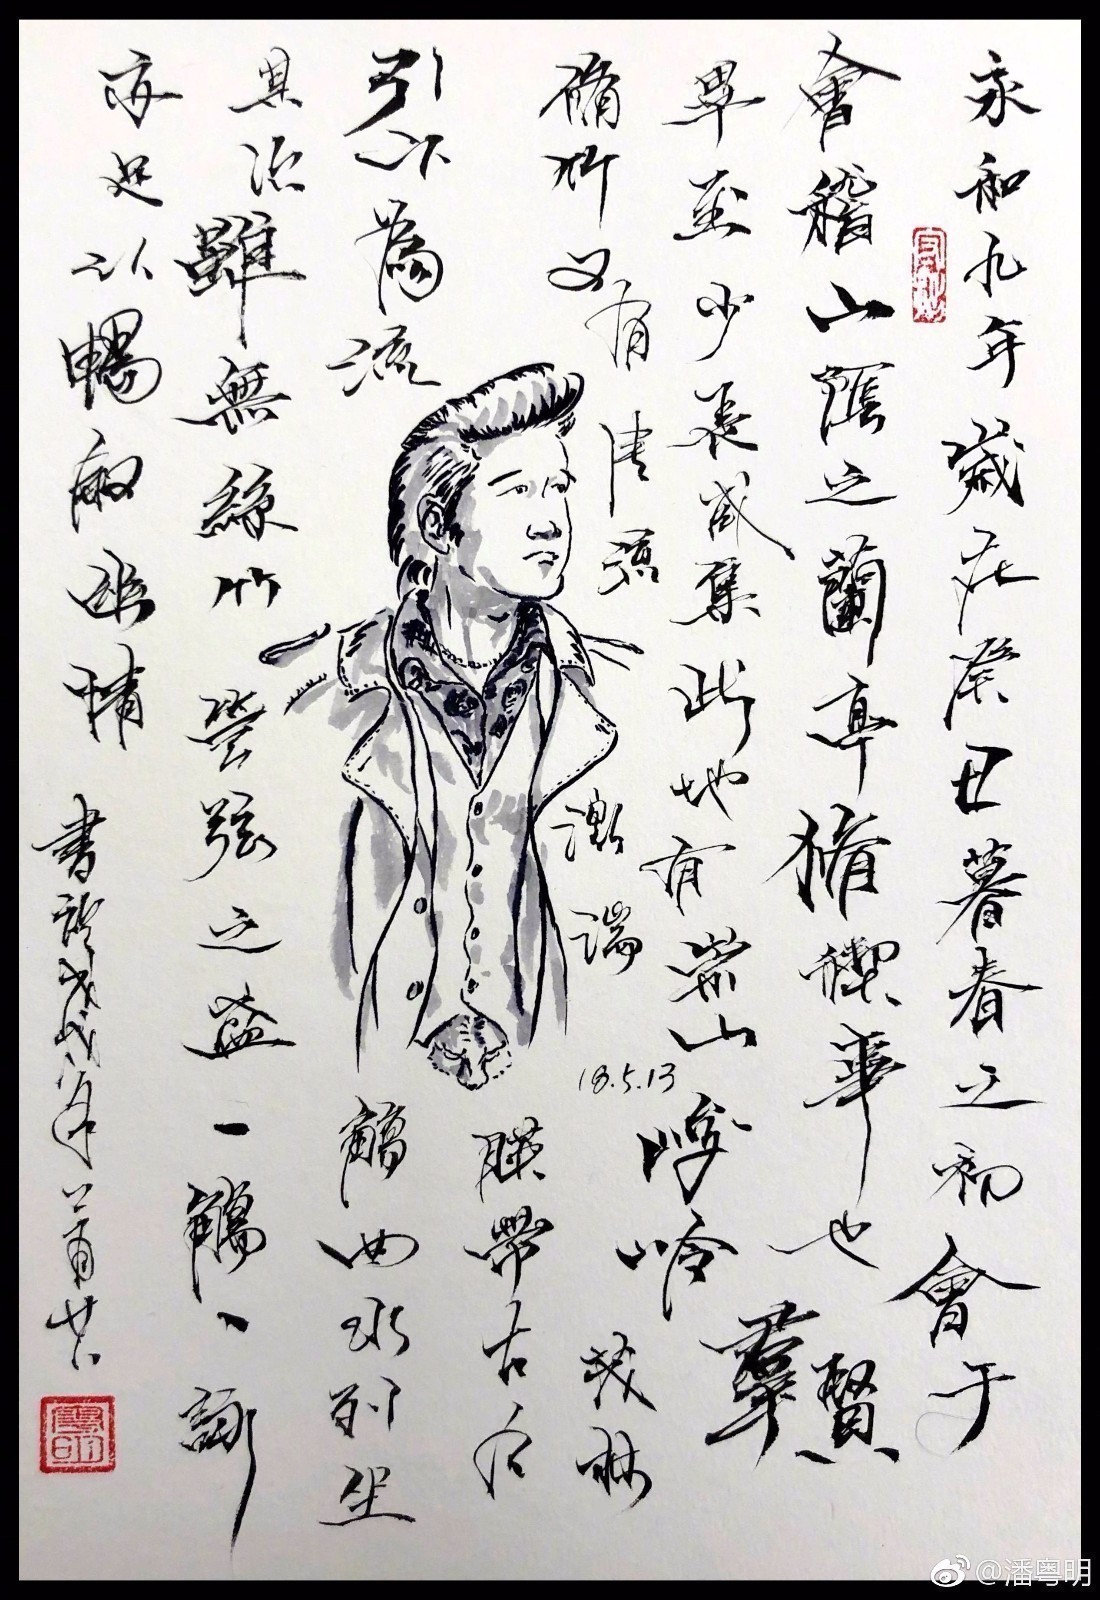 永和九年歲在癸丑暮春之初會于
會稽山陰之蘭亭脩禊事也羣賢
畢至少長咸集此地有崇山峻嶺茂林
脩竹又有清流激湍
暎帶左右
引以為流觴曲水列坐
其次雖無絲竹管弦之盛一觴一詠
亦足以暢敘幽情
18.5.13
@潘粤明